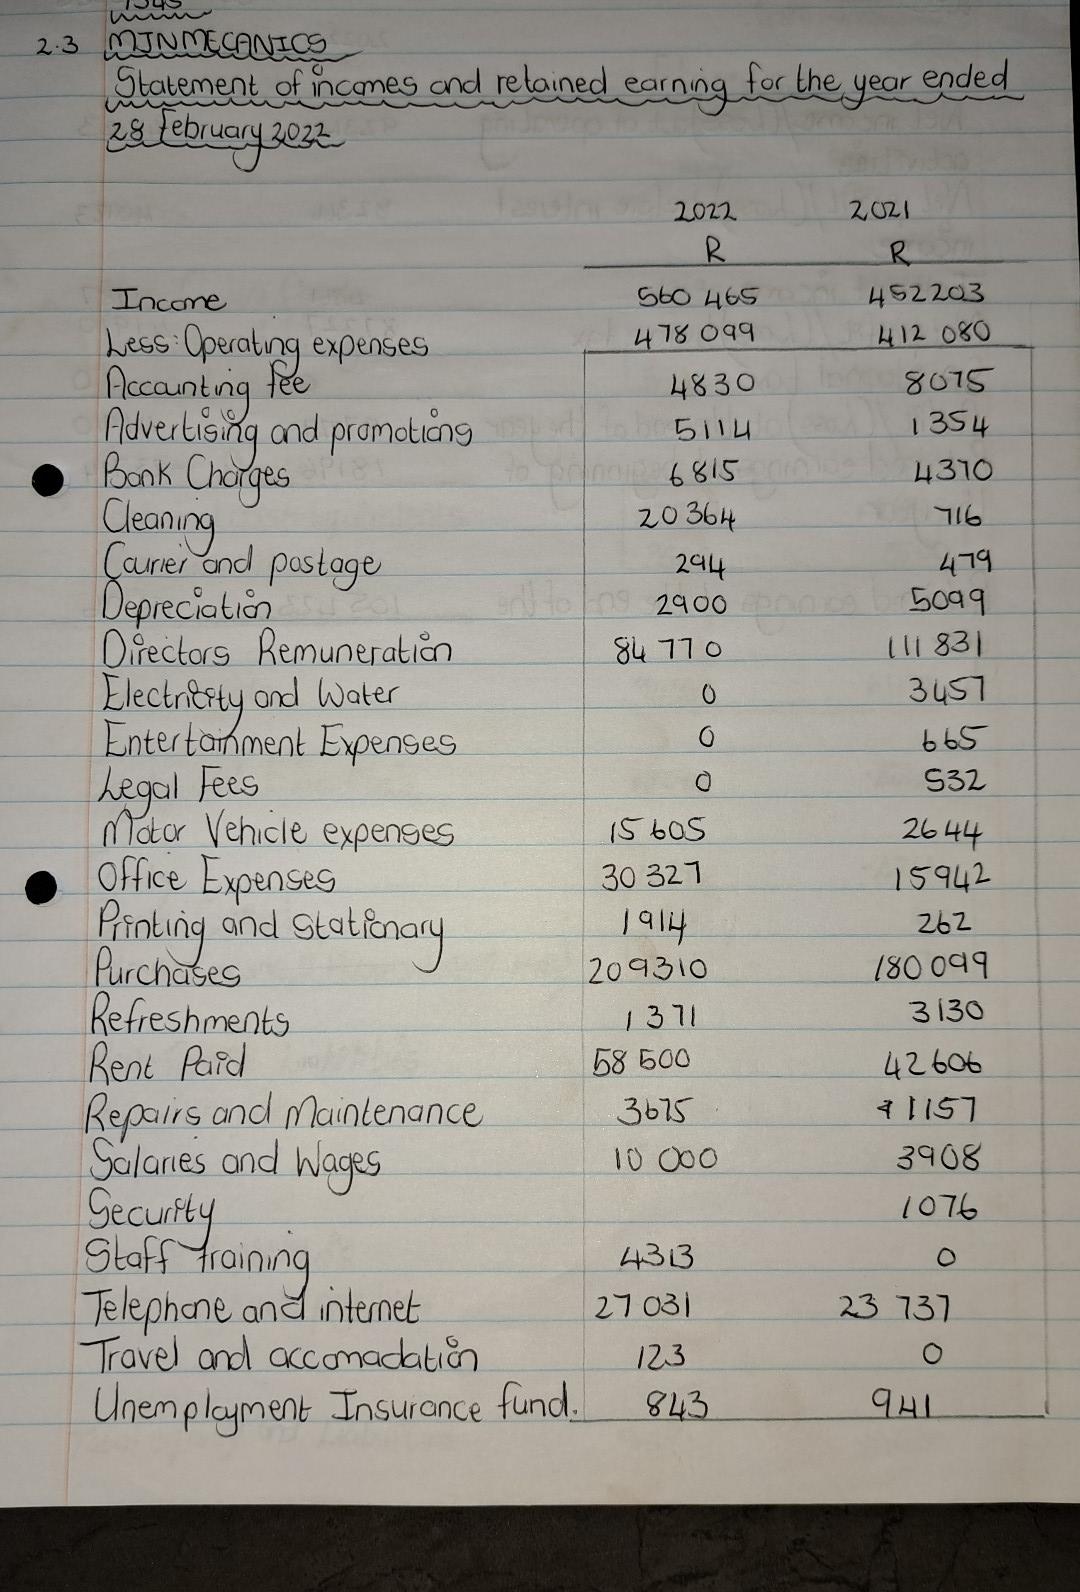 2.3 MJNMECANICS
Statement of incomes and retained earning for the year ended
28 February 2022
2022 2021
R R
Income 560 465 452203
Less: Operating expenses 478 099 412 080
Accounting fee 4830 8075
Advertising and promotions 5114 1354
Bank Charges 6815 4370
Cleaning 20364 716
Courier and postage 294 479
Depreciation 2900 5099
Directors Remuneration 84 770 111 831
Electricity and Water 0 3457
Entertainment Expenses 0 665
Legal Fees 0 532
Motor Vehicle expenses 15 605 2644
Office Expenses 30 327 15942
Printing and Stationary 1914 262
Purchases 209310 180 099
Refreshments 1371 3130
Rent Paid 58 500 42606
Repairs and Maintenance 3675 1157
Salaries and Wages 10 000 3908
Security 1076
Staff training 4313 0
Telephone and internet 27 031 23 737
Travel and accomadation 123 0
Unemployment Insurance fund. 843 941